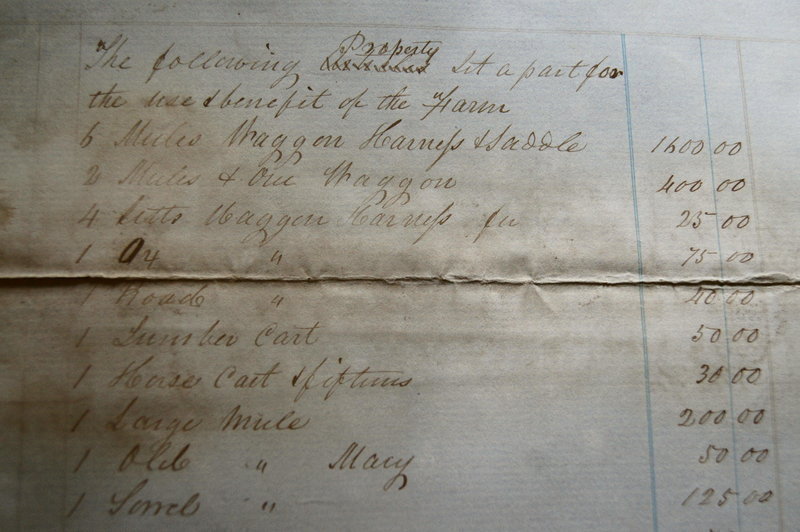 The following Property Set a part for
the use & benefit of the Farm
6 Mules Waggon Harness & Saddle 1600 00
2 Mules & One Waggon 400 00
4 Setts Waggon Harness 25 00
1 Ox " 75 00
1 Road " 40 00
1 Lumber Cart 50 00
1 Horse Cart & fixtures 30 00
1 Large Mule 200 00
1 Old " Mary 50 00
1 Sorrel " 125 00